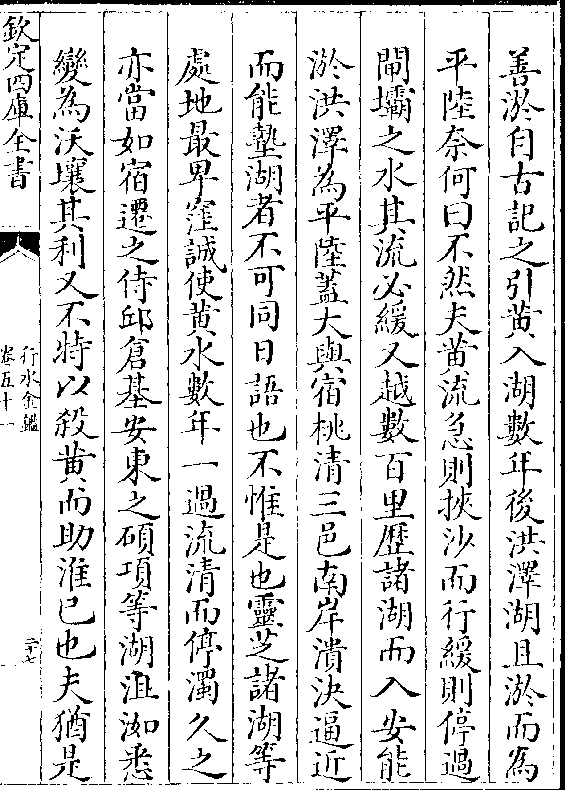 善淤自古記之引黄入湖數年後洪澤湖且淤而為
平陸奈何曰不然夫黄流急則挾沙而行緩則停過
閘壩之水其流必緩又越數百里歷諸湖而入安能
淤洪澤為平陸蓋大與宿桃清三邑南岸潰決逼近
而能墊湖者不可同日語也不惟是也靈芝諸湖等
處地最卑窪誠使黄水數年一過流清而停濁久之
亦當如宿遷之侍邱倉基安東之碩項等湖沮洳悉
變為沃壤其利又不特以殺黄而助淮已也夫猶是
欽定四庫全書
行水金鑑
卷五十一
三十七